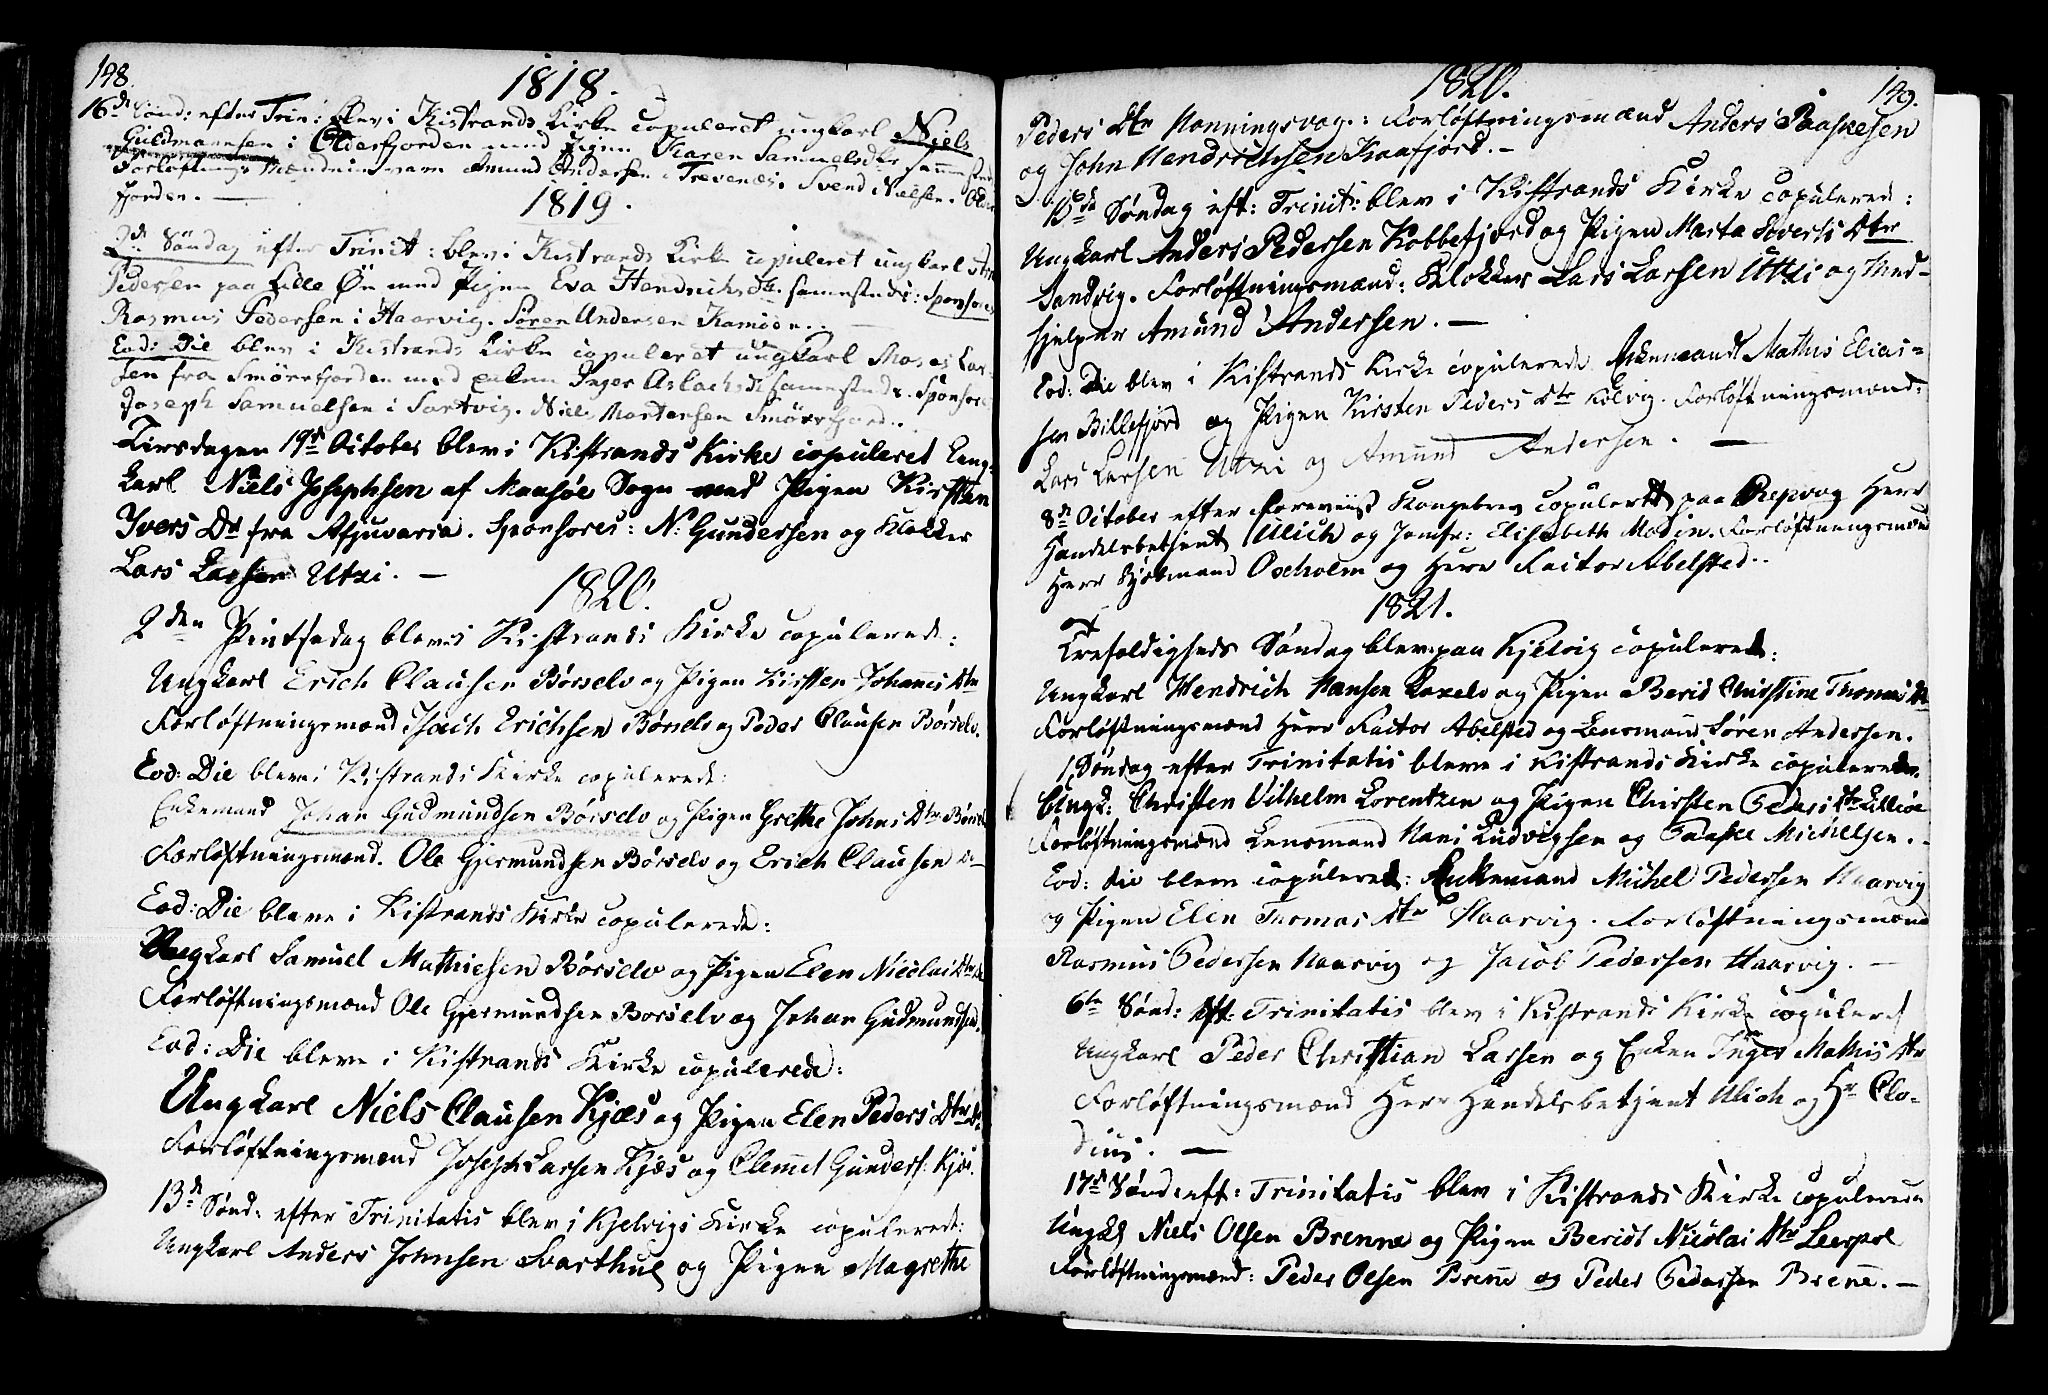 148.
1818.
16de Sønd: efter Trin: blev i Kistrands Kirke copuleret ungkarl Niels
Guldmannsen i Olderfjorden med Pigen Karen Samuelsdtr sammesteds
Forløftnings Mændene vare Amund Andersen i Trevenæs. Svend Nielsen. Older
fjorden. —
1819.
2de Søndag efter Trinit: blev i Kistrands Kirke copuleret ungkarl
Pedersen paa Lille Øe med Pigen Eva Hendrichsdtr. sammesteds: Sponsores
Rasmus Pedersen i Haarvig. Søren Andersen Kamøen.. —
Eod: Die blev i Kistrands Kirke copuleret ungkarl Moses Lar-
sen fra Smørrfjorden med enken Inger Aslachsdtr sammesteds. Sponsores
Joseph Samuelsen i Sortvig. Niels Mortensen Smørrfjord..
Tirsdagen 19de October blev i Kistrands Kirke copuleret Ung-
karl Niels Josephsen af Maasøe Sogn med Pigen Kirsten
Ivers Dtr fra Afjuvaria. Sponsores: N: Gundersen og Klokker
Lars Larsen Utzi. —
1820.
2den Pintsedag bleve i Kistrands Kirke copulerede:
Ungkarl Erich Clausen Børselv og Pigen Kirsten Johanes Dtr
Forløftningsmænd Isach Erichsen Børselv og Peder Clausen Børselv.
Eod: Die bleve i Kistrands Kirke copulerede:
Enkemand Johan Gudmundsen Børselv og Pigen Grethe Johns Dtr Børselv
Forløftningsmænd. Ole Gjermundsen Børselv og Erich Clausen
Eod: Die bleve i Kistrands Kirke copulerede:
Ungkarl Samuel Mathiesen Børselv og Pigen Elen Nicolai Dtr
Forløftningsmænd Ole Gjermundsen Borselv og Johan Gudmundsen.
Eod: Die bleve i Kistrands Kirke copulerede:
Ungkarl Niels Clausen Kjæs og Pigen Elen Peders Dtr
Forløftningsmænd Joseph Larsen Kjæs og Clemet Gunders: Kjæs.
13de Sønd: efter Trinitatis blev i Kjelvigs Kirke copulerede:
Ungkarl Anders Johnsen Svarthul og Pigen Magrethe
149.
1820.
Peders Dtr Honningsvog.: Forløftningsmænd Anders Paaskesen
og John Hendrichsen Kaafjord. —
15de Søndag eft: Trinit: blev i Kistrands Kirke copulerede:
Ungkarl Anders Pedersen Kobbefjord og Pigen Marta Soverts Dtr
Sandvig. Forløftningsmænd: Klokker Lars Larsen Utzi og Med-
hjelper Amund Andersen. —
Eod: Die blev i Kistrands Kirke copulerede Enkemand Mathis Elias-
sen Billefjord og Pigen Kirsten Peders Dtr Kolvig. Forløftningsmænd:
Lars Larsen Utzi og Amund Andersen. —
8de October efter Foreviist Kongebrev copuleret paa Repvog Herr
Handelsbetjent Ulich og Jomfr: Elisabeth Modin. Forløftningsmænd
Herr Kjøbmand Oxholm og Herr Factor Abelsted..
1821.
Trefoldigheds Søndag blev paa Kjelvig copulered:
Ungkarl Hendrich Hansen Laxelv og Pigen Berid Christine Thomas Dtr
Forløftningsmænd Herr Factor Abelsted og Lensmand Søren Andersen.
1. Søndag efter Trinitatis bleve i Kistrands Kirke copulerede.
Ungk: Christen Vilhelm Lorentzen og Pigen Chirsten Peders Dtr Lilleøe
Forløftningsmænd Lensmand Hans Ludvigsen og Paaske Michelsen..
Eod: die bleve copulered: Enkemand Michel Pedersen Haarvig
og Pigen Elen Thomas Dtr Haarvig. Forløftningsmænd
Rasmus Pedersen Haarvig og Jacob Pedersen Haarvig. —
6te Sønd: Eft: Trinitatis blev i Kistrands Kirke copuleret
Ungkarl Peder Christian Larsen og Enken Inger Mathis Dtr
Forløftningsmænd Herr Handelsbetjent Ulich og Hr Clo-
dius. —
17de Sønd eft: Trinitatis blev i Kistrands Kirke copuleren
Ungk Niels Olsen Brenne og Pigen Beridt Nicolai Dtr Leerpol
Forløftningsmænd: Peder Olsen Breñe og Peder Pedersen Breñe. —